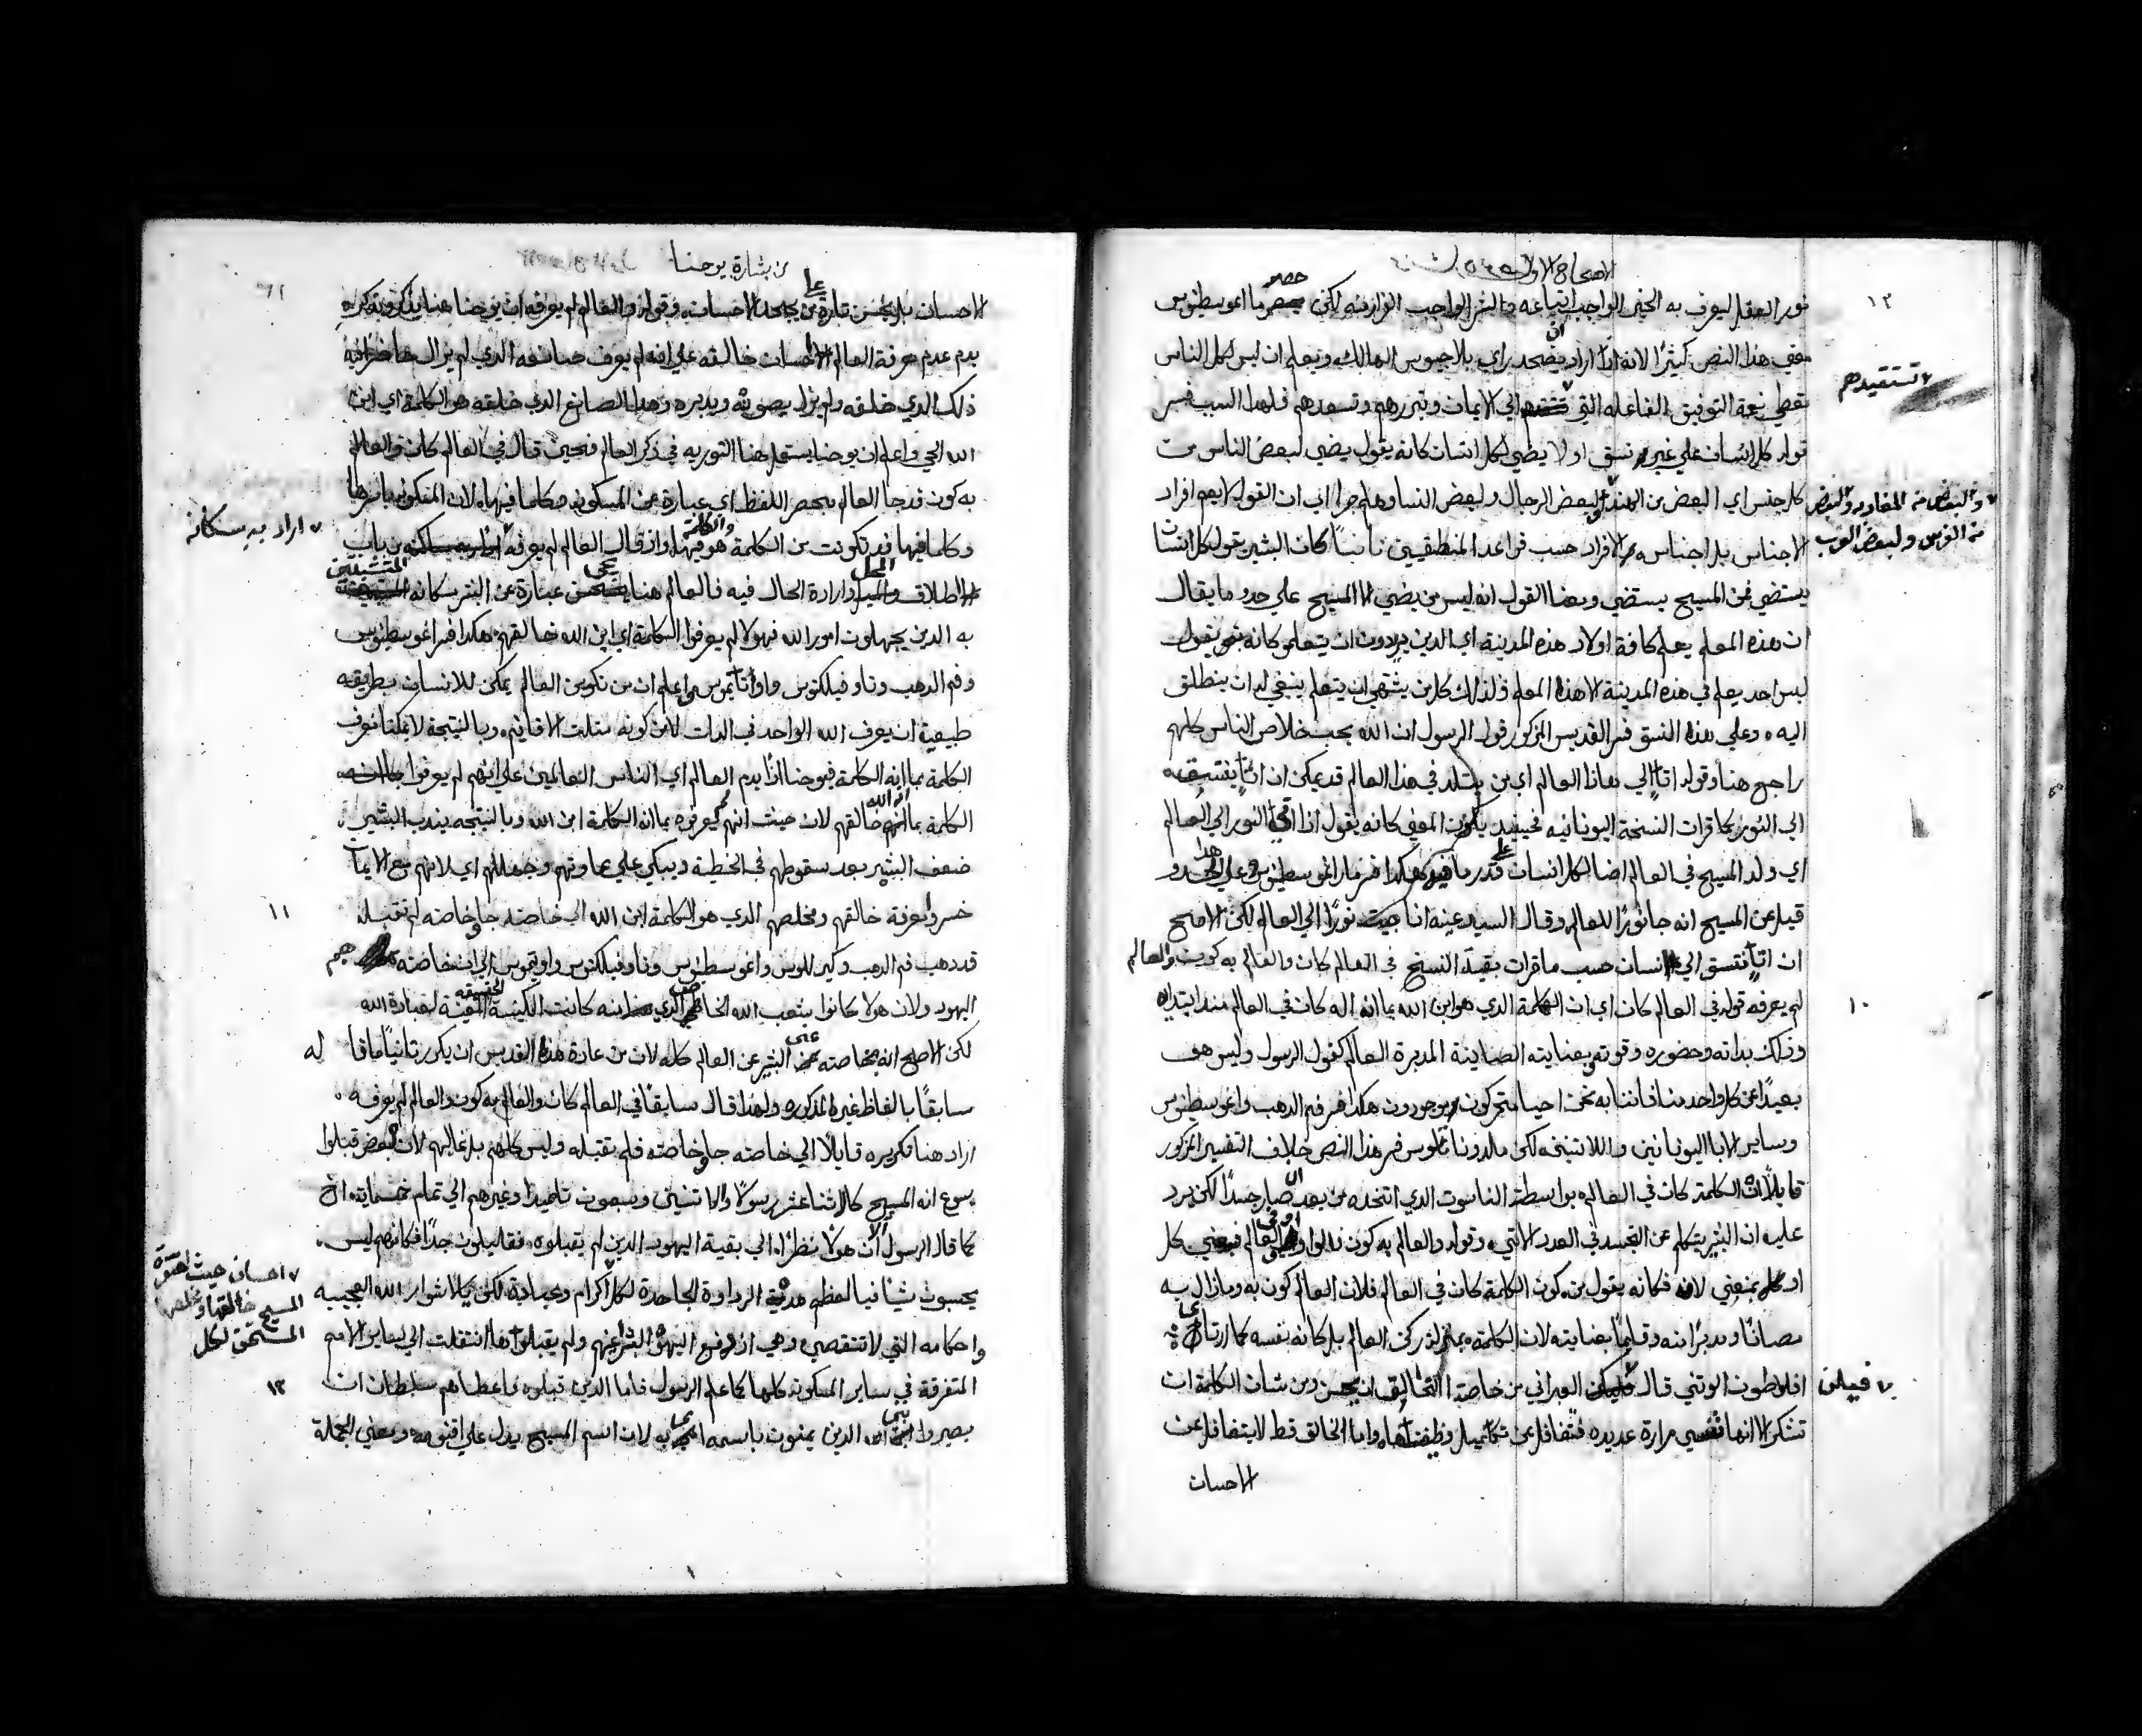 الاصحاح الاول
نور العقل ليعرف به الخير الواجب اتباعه والشر الواجب الفرار منه لكن حصر ما اغوسطينوس
معني هذا النص كثيرًا لانه اذا اراد ان يضحد راي بالاجيوس الهالك ويعلم ان ليس لكل الناس
تعطي نعمة التوفيق الفاعله التي الي الايمان وتبررهم وتسعدهم فلهذا السبب فسر
تستقيدهم
قوله كل انسان علي غير نسق اولا يضي لكل انسان كانه يقول يضي لبعض الناس من
كل جنس اي البعض من الهنود ولبعض الرجال ولبعض النسا وهلم جرا اي ان القول لا يعم افراد
والبعض من المغاربه والبعض
من الفرس ولبعض العرب
الاجناس بل اجناس الافراد حسب قواعد المنطقيين ثانيًا كان البشير يقول كل انسان
يستضي فمن المسيح يستضي ومعنا القول انه ليس من يضي الا المسيح علي حدو ما يقال
ان هذه المعلم يعلم كافة اولاد هذه المدينة اي الدين يريدون ان يتعلمو كانه يقول
ليس احد يعلم في هذه المدينة الا هذا المعلم ولذلك كل من يشتهي ان يتعلم ينبغي له ان ينطلق
اليه وعلي هذا النسق فسر القديس المذكور قول الرسول ان الله يحب خلاص الناس كلهم
راجع هنا وقوله اتيًا الي هاذا العالم اي من يتلد في هذا العالم قد يمكن ان اتيًا
الي النور كما قرات النسخة اليونانيه فحينيد يكون المعني كانه يقول اذا اتي النور الي العالم
اي ولد المسيح في العالم اضا لكل انسان علي قدر ما فيه هكدا فسر مار اغوسطينوس وعلي هذا الحدو
قيل عن المسيح انه جا نورًا للعالم وقال السيد عينه انا جيت نورًا الي العالم لكن الاصح
ان اتيًا تنتسق الي انسان حسب ما قرات بقية النسخ في العالم كان والعالم به كون والعالم
١٠
لم يعرفه قوله في العالم كان اي ان الكلمة الدي هو ابن الله بما انه اله كان في العالم مند ابتداه
وذلك بداته وحضوره وقوته وبعنايته الصاينة المدبرة العالم كقول الرسول وليس هو
بعيدًا عن كل واحد منا فاننا به نحن احيا متحركون وموجودون هكدا فسر فم الدهب واغوسطينوس
وساير الابا اليونانين واللاتنيين لكن مالدوناتوس فسر هذا النص خلاف التفسير المذكور
قايلًا ان الكلمة كان في العالم بواسطة الناسوت الدي اتخده من بعد ان صار جسدًا لكن يرد
عليه ان البشير يتكلم عن التجسد في العدد الاتي وقوله والعالم به كون
فكانه يقول من كون الكلمة كان في العالم فلان العالم كون به ومازال به
مصانًا ومدبرًا منه وقايمًا بعنايته لان الكلمة بمنزلة ركن العالم بل كانه نفسه كما ارتاي
افلاطون الوتني قال العبراني من خاصة الخالق ان يحسن ومن شان الكلمة ان
فيلن
تشكر الا انها تنسي مرارة عديده فتتغافل عن تكميل وظيفتها واما الخالق قط لا يتغافل عن
الاحسان
من بشارة يوحنا
الاحسان بل يحسن تارة علي من يجحد الاحسان وقوله والعالم لم يعرفه
يدم عدم معرفة العالم لاحسان خالقه علي انه لم يعرف صانعه الدي لم يزل حاضرًا فيه
ذلك الدي خلقه ولم يزل يصونه ويدبره وهدا الصانع الدي خلقه هو الكلمة اي ابن
الله الحي واعلم ان يوحنا يستعمل هنا التوريه في ذكر العالم فحين قال في العالم كان والعالم
به كون فدرجا العالم بحصر اللفظ اي عبارة عن المسكونه وكلما فيها لان المسكونه باسرها
وكلما فيها قد تكونت من الكلمة والكلمة هو فيها واذ قال العالم لم يعرفه من باب
اراد به سكانه
اطلاق المحل وارادة الحال فيه فالعالم هنا عبارة عن البشر سكانه
به الدين يجهلون امور الله فهولا لم يعرفوا الكلمة اي ابن الله خالقهم هكدا فسر اغوسطينوس
وفم الدهب وتاوفيلكتوس واوتيميوس واعلم ان من تكوين العالم يمكن للانسان بطريقه
طبيعية ان يعرف الله الواحد في الدات لا من كونه مثلث الاقانيم وبالنتيجة لا يمكنا نعرف
الكلمة بما انه الكلمة فيوحنا اذًا يدم العالم اي الناس العالمين علي انهم لم يعرفوا
الكلمة بما انه الله خالقهم لان حيث انهم لم يعرفوه بما انه الكلمة ابن الله وبالنتيجه يندب البشير
ضعف البشر بعد سقوطهم في الخطية ويبكي علي عماوتهم وجهلهم اي لانهم مع الايمان
خسروا معرفة خالقهم ومخلصهم الدي هو الكلمة ابن الله الي خاصته جا وخاصته لم تقبله
١١
قد دهب فم الدهب وكيرللوس واغوسطينوس وتاوفيلكتوس واوتيميوس الي ان خاصته هم
اليهود ولان هولا كانوا شعب الله الخاص الدي منه كانت الكنيسة الحقيقه لعبادة الله
لكن الاصح انه بخاصته عني البشير عن العالم كله لان من عادة هذا القديس ان يكرر ثانيًا ما قاله
سابقًا بالفاظ غير المذكوره ولهذا قال سابقًا في العالم كان والعالم به كون والعالم لم يعرفه
اراد هنا تكريره قايلًا الي خاصته جا وخاصته فلم تقبله وليس كلهم بل غالبهم لان البعض قبلوا
يسوع انه المسيح كالاثنا عشر رسولًا والاتنين وسبعون تلميدًا وغيرهم الي تمام خمسماية اخ
كما قال الرسول الا ان هولا نظرًا الي بقية اليهود الدين لم يقبلوه فقليلون جدًا فكانهم ليس
يحسبون شيًا فيا لعظم هدية الرداوة الجاحدة لكل اكرام وعبادة لكن يا لاسرار الله العجيبه
احسان حيث احتقرة
المسيح خالقها ومخلصها
المستحق لكل
واحكامه التي لا تنقصي وهي اذ رفع اليهود الشر عنهم ولم يقبلوها انتقلت الي ساير الامم
المتفرقة في ساير المسكونه كلها كما علم الرسول فاما الدين قبلوه فاعطاهم سلطان ان
١٢
يصيروا بني الله الدين يمنون باسمه اي به لان اسم المسيح يدل علي اقنومه ومعني الجملة